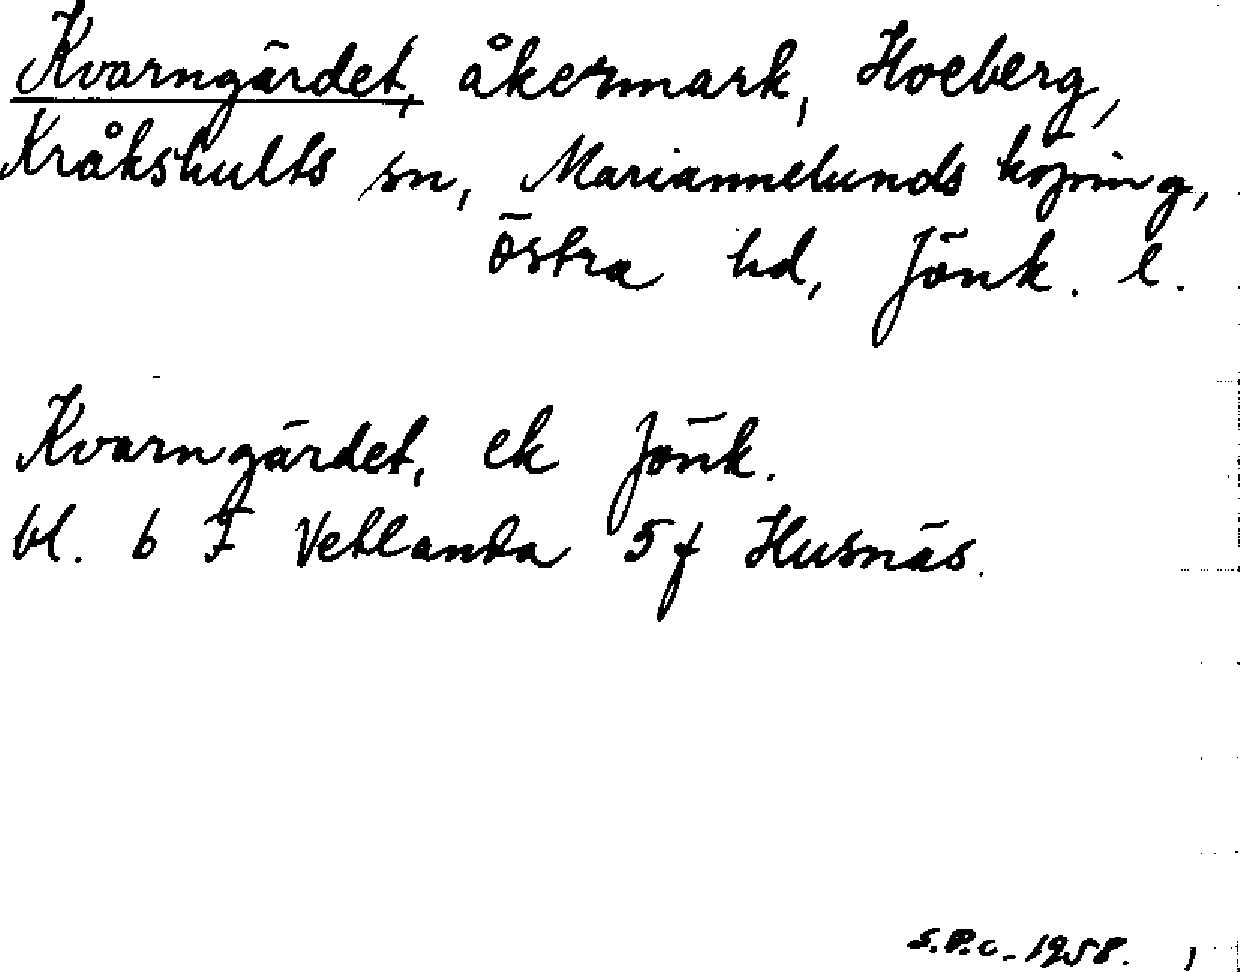 Kvarngärdet, åkermark, Hoeberg,
Kråkshults sn, Mariannelunds köping,
Östra hd, Jönk. l.
Kvarngärdet, ek Jönk.
bl. 6 F Vetlanda 5 f Husnäs.
S.P.C. 1958.